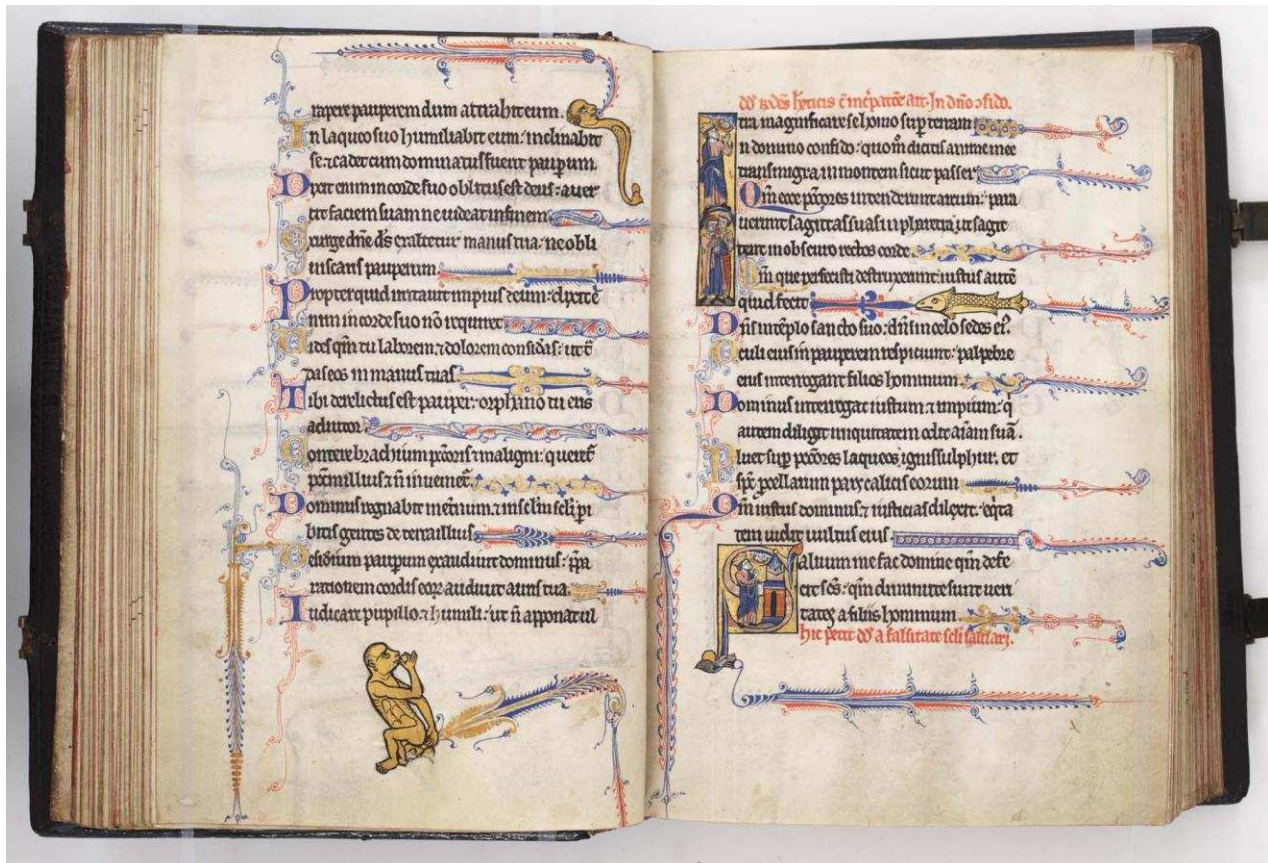 rapere pauperem dum attrahit eum.
In laqueo suo humiliabit eum: inclinabit
se: ⁊ cadet cum dominatus fuerit paupum.
Dixit enim in corde suo oblitus est deus: auer
tit faciem suam ne uideat in finem
Exurge dñe ds exaltetur manus tua: ne obli
uiscaris pauperum
Propter quid irritauit impius deum: dixit e
nim in corde suo nō requiret
Uides qm̄ tu laborem ⁊ dolorem consid̓as: ut t̄
das eos in manus tuas
Tibi derelictus est pauper: orphano tu eris
adiutor
Contere brachium pc̄coris ⁊ maligni: queret̄
pc̄cm illius ⁊ n̄ inueniet̄
Dominus regnabit in et̓num ⁊ in sclm scli: ꝑi
bitis gentes de terra illius
Desiderium pauꝑum exaudiuit dominus: p̄pa
rationem cordis eoꝝ audiuit auris tua
Iudicare pupillo ⁊ humili: ut n̄ apponat ul
In dño ɔfido.
tra magnificare se homo suꝑ terram
n domino confido: quom̄ dicitis anime mee
transmigra in montem sicut passer
Qm̄ ecce pc̄cores intenderunt arcum: para
uerunt sagittas suas in pharetra: ut sagit
tent in obscuro rectos corde
Qm̄ que perfecisti destruxerunt: iustus autē
quid fecit
Dn̄s in tēplo sancto suo: dn̄s in celo sedes eiꝰ
Oculi eius in pauperem respiciunt: palpebre
eius interrogant filios hominum
Dominus interrogat iustum ⁊ impium: q̓
autem diligit iniquitatem odit aīam suā.
Pluet suꝑ pc̄cores laqueos: ignis sulphur. et
sp̄c ꝓcellarum pars calicis eorum
Qm̄ iustus dominus ⁊ iusticias dilexit: eq̓ta
tem uidit uultus eius
Saluum me fac domine qm̄ defe
cit sc̄s: qm̄ diminute sunt ueri
tates a filiis hominum
hic petit dd̄ a falsitate scli saluari.